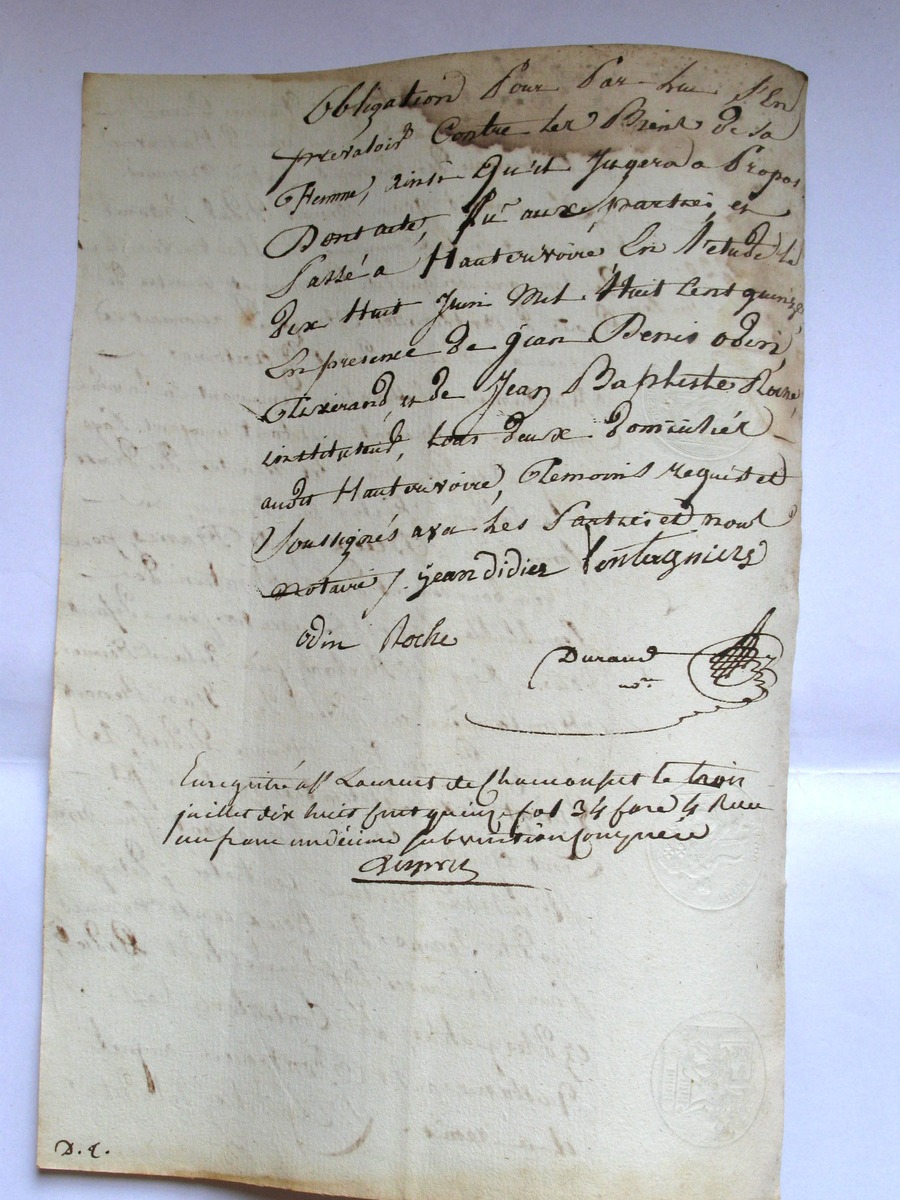 obligation Pour Par lui S'En
prevaloir Contre les Biens de sa
Femme, ainsi Qu'il Jugera a Propos
Dont acte, lu aux parties, et
Passé a Hauterivoire En l'etude le
dix Huit Juin Mil Huit Cent quinze,
En presence de jean Denis odin,
Tixerand, et de Jean Baptiste Roche,
instituteur, tous deux domiciliés
audit Hauterivoire, Temoins requis et
Soussignés avec les Parties et nous
notaire /. jean didier
odin Roche
Durand
nre
Enregistré a St Laurent de Chamousset le trois
juillet dix huit cent quinze fol 34 Recu
un franc un décime subvention comprise
D. C.